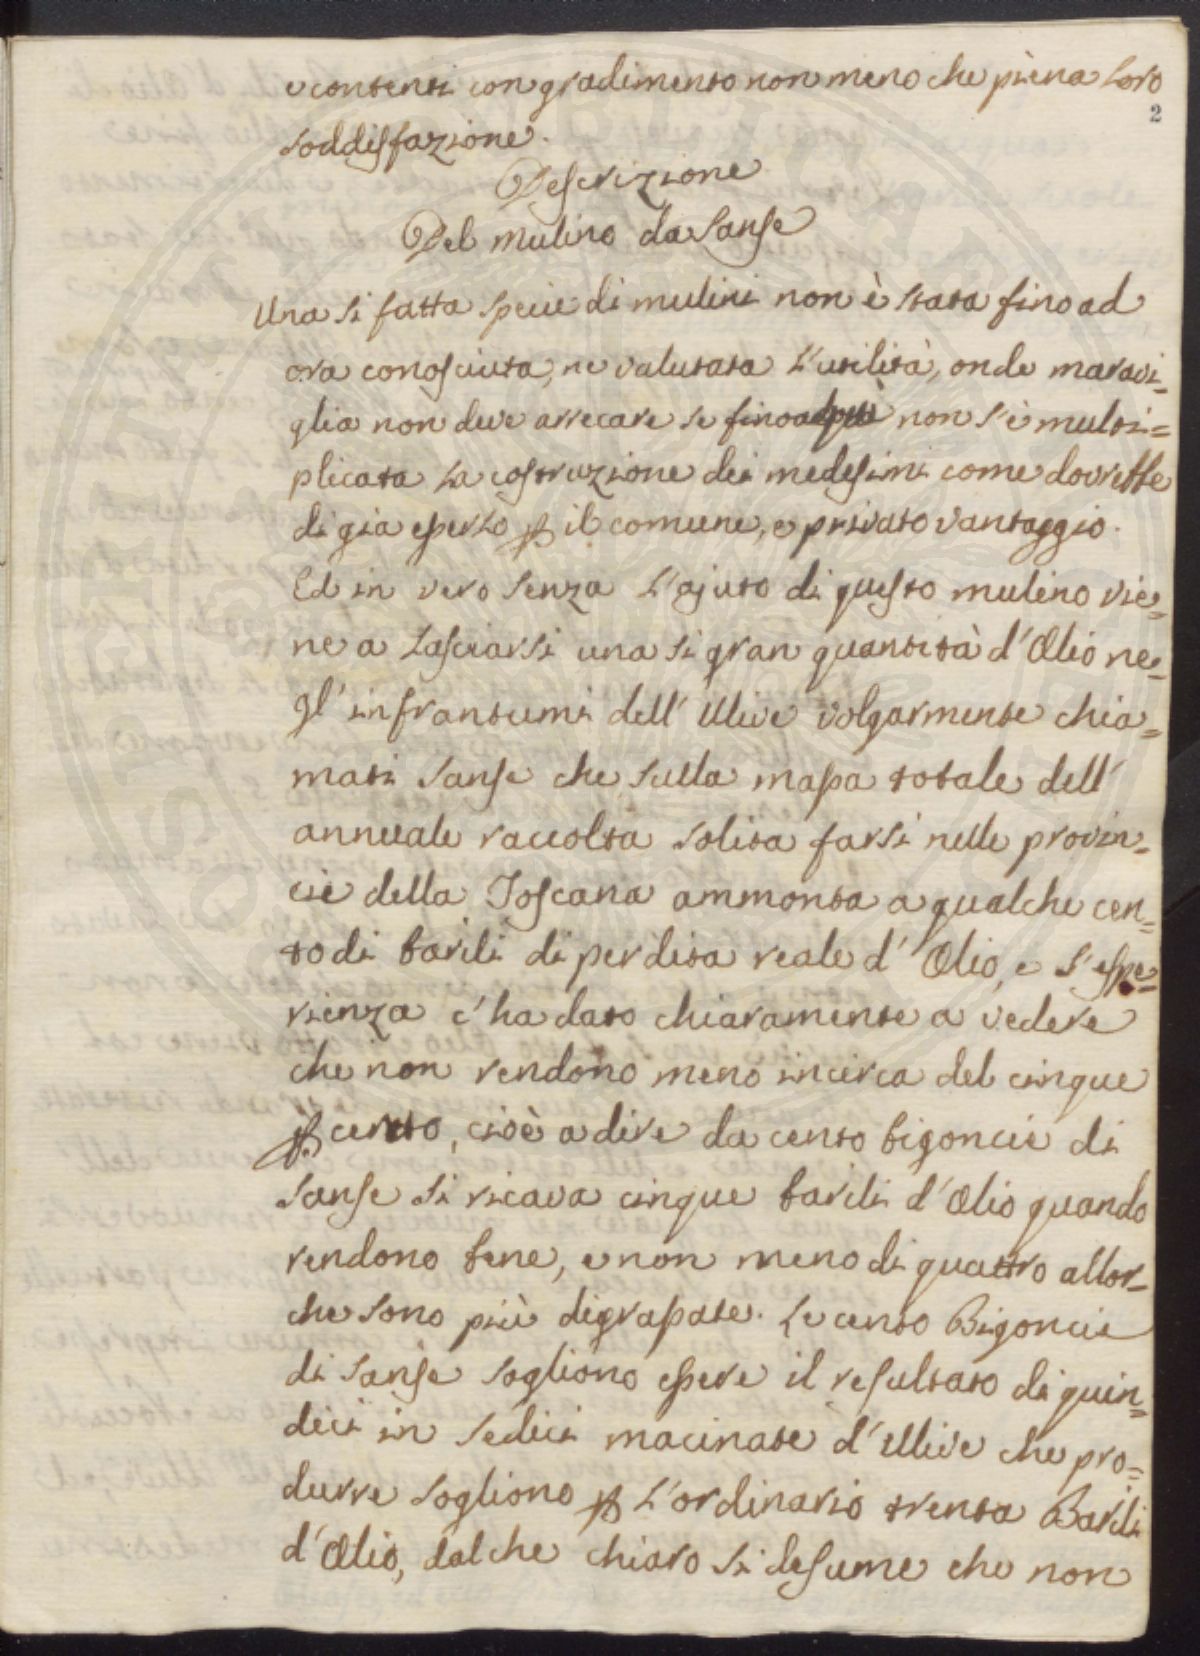 e contenti con gradimento non meno che piena loro
2
soddisfazione.
Descrizione
Del mulino da Sanse
Una si fatta specie di mulini non è stata fino ad
ora conosciuta, ne valutata l'utilità, onde maravi=
glia non deve arrecare se fino ad non s'è multi=
plicata la costruzione dei medesimi come dovrebbe
di gia esserlo p il comune, e privato vantaggio.
Ed in vero senza l'ajuto di questo mulino vie=
ne a lasciarsi una si gran quantità d'Olio ne=
gl'infrantumi dell'Ulive volgarmente chia=
mati Sanse che sulla massa totale dell'
annuale raccolta solita farsi nelle provin=
cie della Toscana ammonta a qualche cen=
to di barili di perdita reale d'Olio, e l'espe=
rienza c'ha dato chiaramente a vedere
che non rendono meno incirca del cinque
p cento, cioè a dire da cento bigoncie di
Sanse si ricava cinque barili d'Olio quando
rendono bene, e non meno di quattro allor=
che sono più digrassate. Le cento Bigoncie
di Sanse sogliono essere il resultato di quin=
deci in sedici macinate d'Ulive che pro=
durre sogliono p l'ordinario trenta Barili
d'Olio, dal che chiaro si desume che non